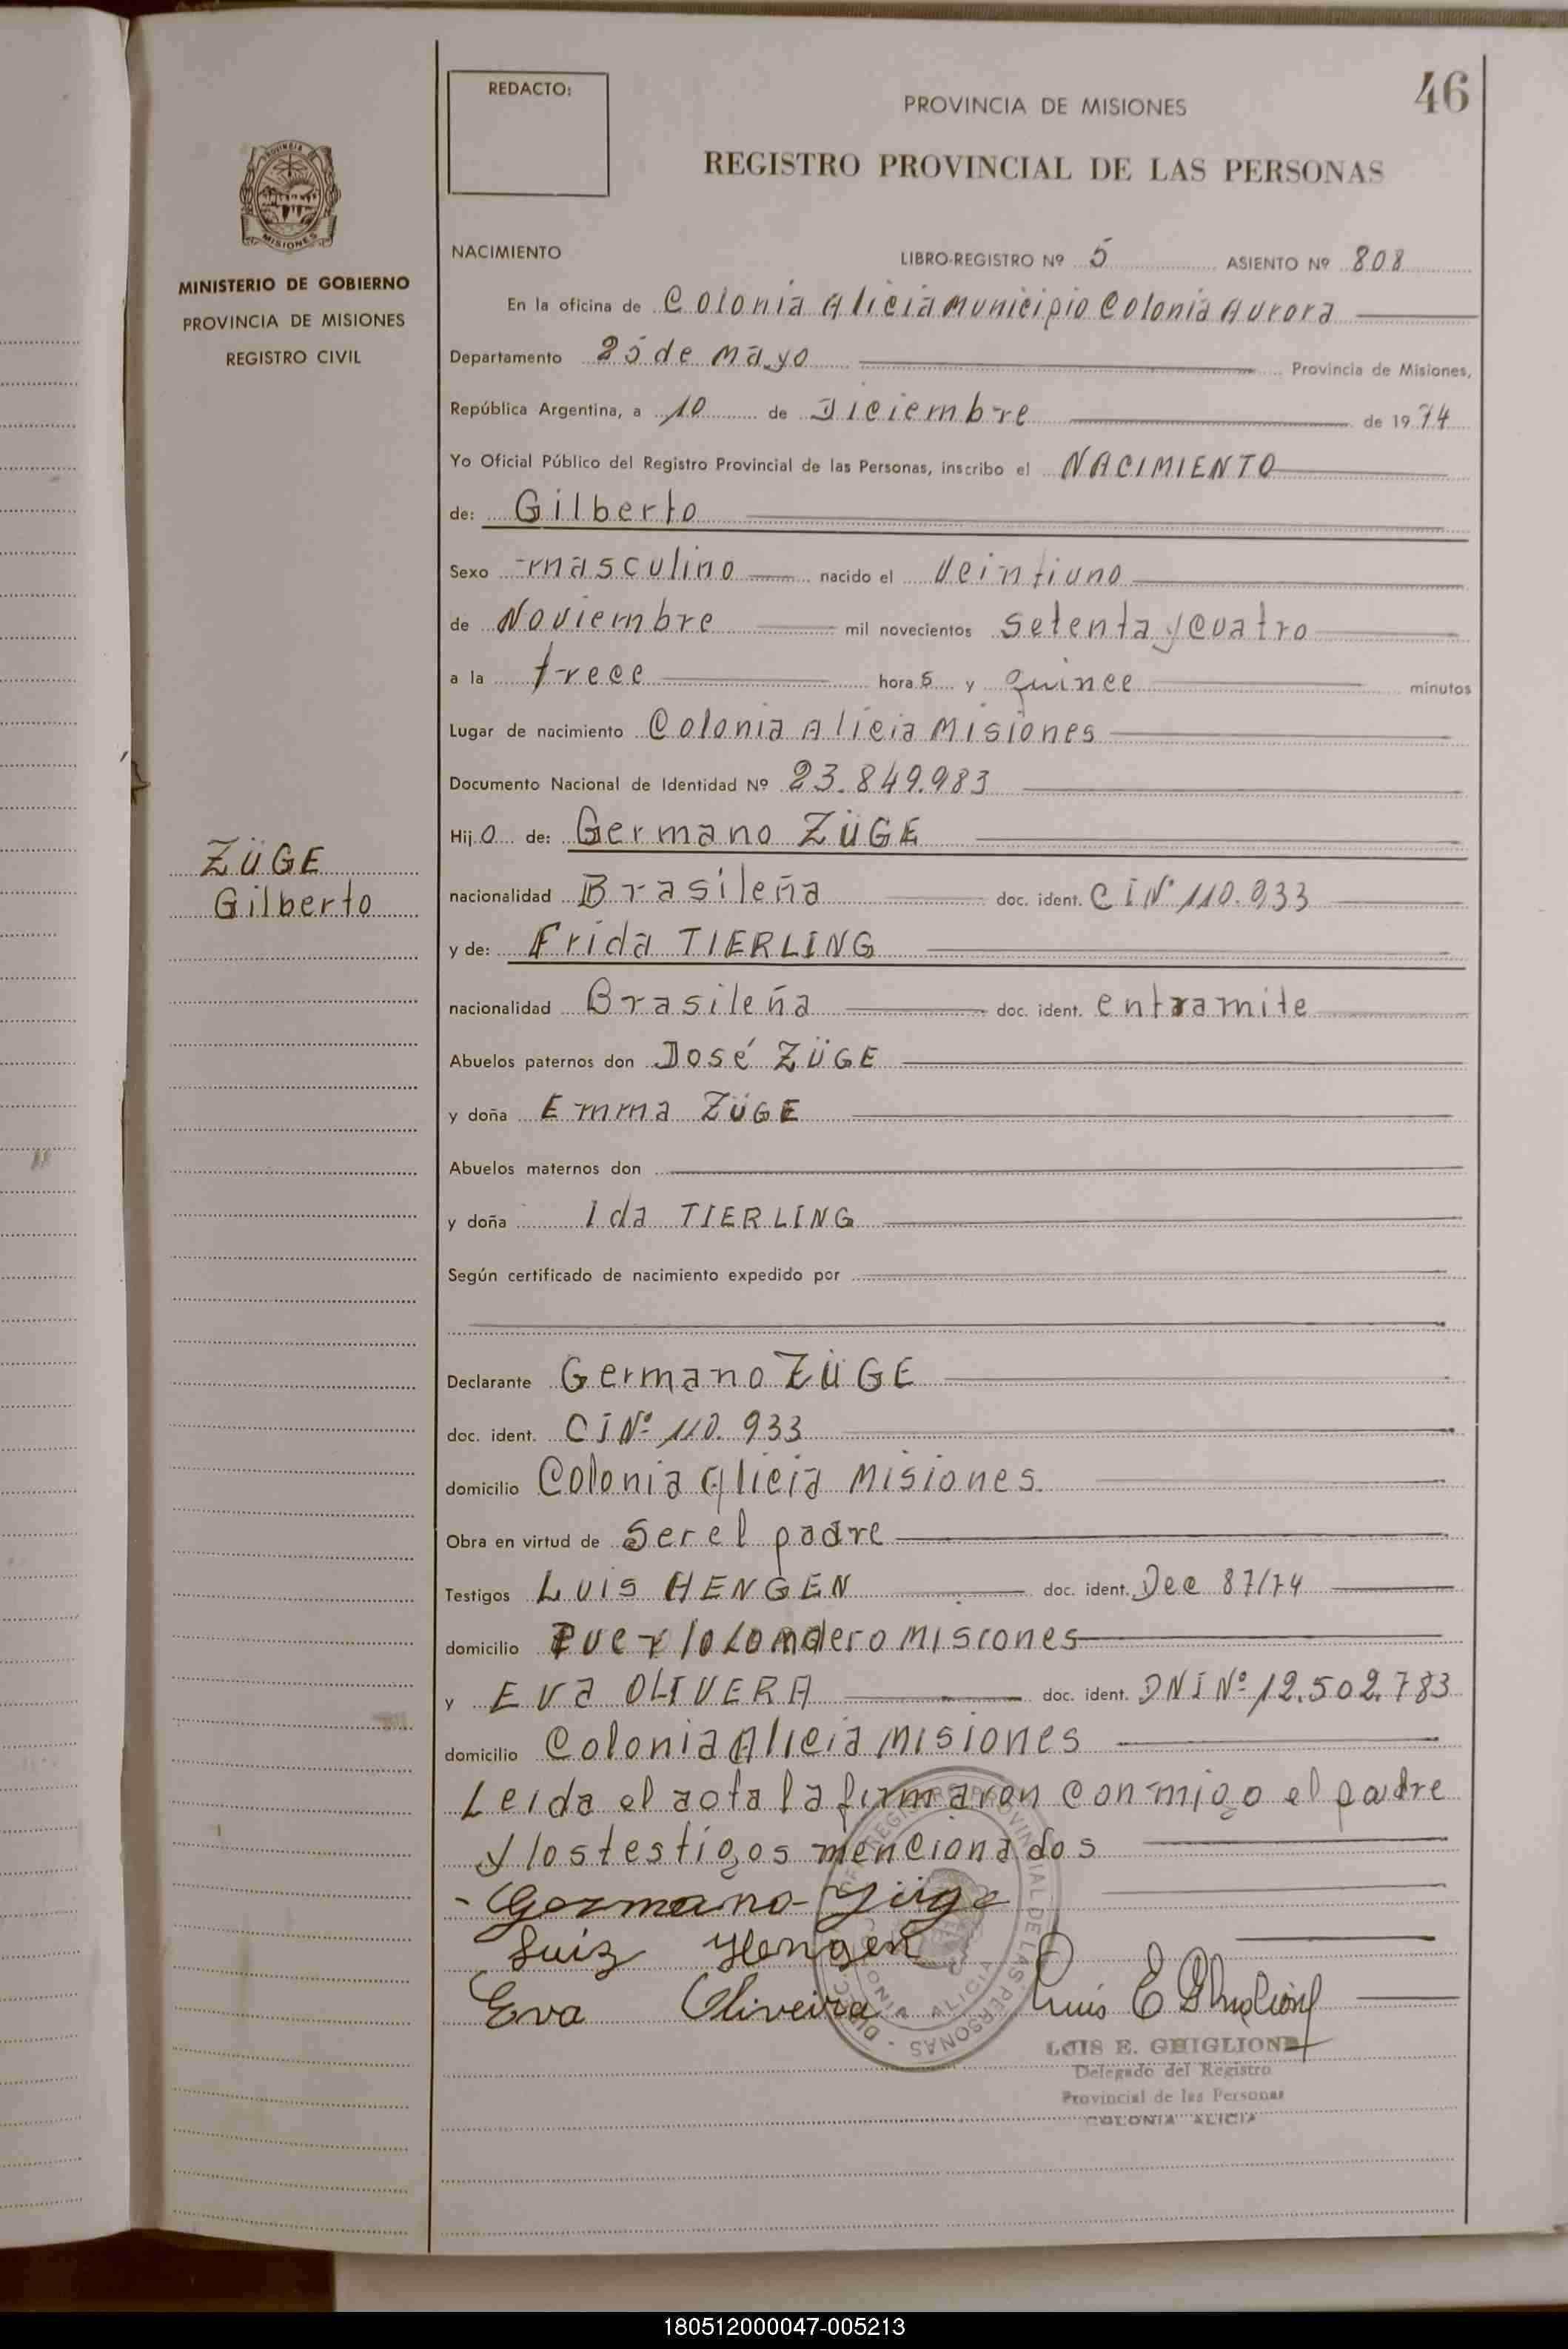 46
REDACTO:
PROVINCIA DE MISIONES
REGISTRO PROVINCIAL DE LAS PERSONAS
PROVINCIA
MISIONES
MINISTERIO DE GOBIERNO
PROVINCIA DE MISIONES
REGISTRO CIVIL
ZÜGE
Gilberto
NACIMIENTO LIBRO-REGISTRO Nº 5 ASIENTO Nº 808
En la oficina de Colonia Alicia Municipio Colonia Aurora
Departamento 25 de Mayo Provincia de Misiones,
República Argentina, a 10 de Diciembre de 1974
Yo Oficial Público del Registro Provincial de las Personas, inscribo el NACIMIENTO
de: Gilberto
Sexo masculino nacido el veintiuno
de Noviembre mil novecientos setenta y cuatro
a la trece horas y quince minutos
Lugar de nacimiento Colonia Alicia Misiones
Documento Nacional de Identidad Nº 23.849.983
Hijo de: Germano ZÜGE
nacionalidad Brasileña doc. ident. CI Nº 110.933
y de: Frida TIERLING
nacionalidad Brasileña doc. ident. en tramite
Abuelos paternos don José ZÜGE
y doña Emma ZÜGE
Abuelos maternos don
y doña Ida TIERLING
Según certificado de nacimiento expedido por
Declarante Germano ZÜGE
doc. ident. CI Nº 110.933
domicilio Colonia Alicia Misiones.
Obra en virtud de Ser el padre
Testigos Luis HENGEN doc. ident. Dec 87/74
domicilio Puerto Londero Misiones
y Eva OLIVERA doc. ident. DNI Nº 12.502.783
domicilio Colonia Alicia Misiones
Leida el acta la firmaron conmigo el padre
y los testigos mencionados
Germano Züge
Luiz Hengen
Eva Oliveira Luis E Ghiglione
REGISTRO PROVINCIAL DE LAS PERSONAS
COLONIA ALICIA
LUIS E. GHIGLIONE
Delegado del Registro
Provincial de las Personas
COLONIA ALICIA
180512000047-005213